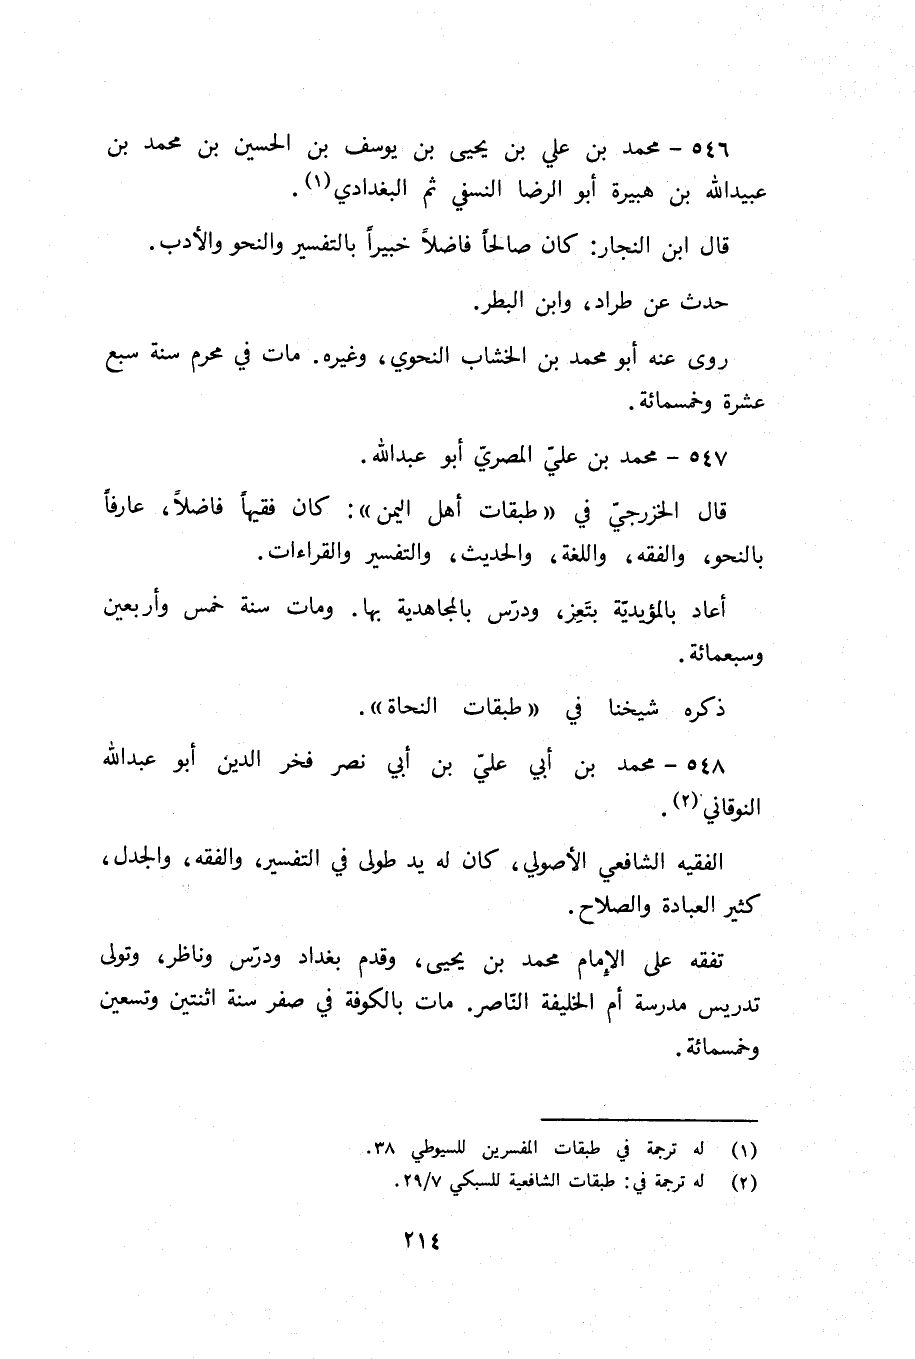 ٥٤٦ - محمد بن علي بن يحيى بن يوسف بن الحسين بن محمد بن
عبيدالله بن هبيرة أبو الرضا النسفي ثم البغدادي(١).
قال ابن النجار: كان صالحاً فاضلاً خبيراً بالتفسير والنحو والأدب.
حدث عن طراد، وابن البطر.
روى عنه أبو محمد بن الخشاب النحوي، وغيره. مات في محرم سنة سبع
عشرة وخمسمائة.
٥٤٧ - محمد بن عليّ المصريّ أبو عبدالله.
قال الخزرجيّ في «طبقات أهل اليمن»: كان فقيهاً فاضلاً، عارفاً
بالنحو، والفقه، واللغة، والحديث، والتفسير والقراءات.
أعاد بالمؤيديّة بتَعِز، ودرّس بالمجاهدية بها. ومات سنة خمس وأربعين
وسبعمائة.
ذكره شيخنا في «طبقات النحاة».
٥٤٨ - محمد بن أبي عليّ بن أبي نصر فخر الدين أبو عبدالله
النوقاني(٢).
الفقيه الشافعي الأصولي، كان له يد طولى في التفسير، والفقه، والجدل،
كثير العبادة والصلاح.
تفقه على الإمام محمد بن يحيى، وقدم بغداد ودرّس وناظر، وتولى
تدريس مدرسة أم الخليفة النّاصر. مات بالكوفة في صفر سنة اثنتين وتسعين
وخمسمائة.
(١) له ترجمة في طبقات المفسرين للسيوطي ٣٨.
(٢) له ترجمة في: طبقات الشافعية للسبكي ٢٩/٧.
٢١٤